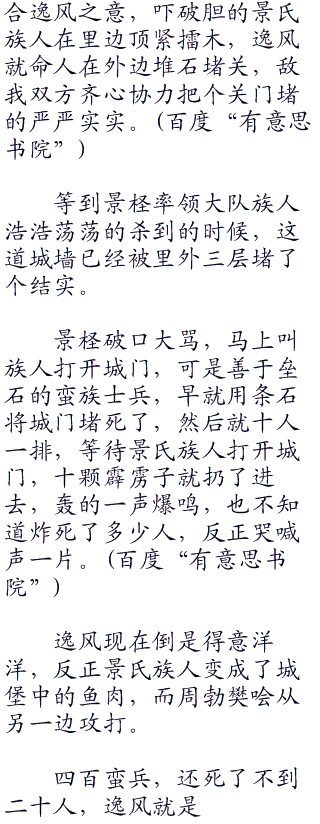 合逸风之意，吓破胆的景氏
族人在里边顶紧擂木，逸风
就命人在外边堆石堵关，敌
我双方齐心协力把个关门堵
的严严实实。(百度“有意思
书院”)
等到景柽率领大队族人
浩浩荡荡的杀到的时候，这
道城墙已经被里外三层堵了
个结实。
景柽破口大骂，马上叫
族人打开城门，可是善于垒
石的蛮族士兵，早就用条石
将城门堵死了，然后就十人
一排，等待景氏族人打开城
门，十颗霹雳子就扔了进
去，轰的一声爆鸣，也不知
道炸死了多少人，反正哭喊
声一片。(百度“有意思书
院”)
逸风现在倒是得意洋
洋，反正景氏族人变成了城
堡中的鱼肉，而周勃樊哙从
另一边攻打。
四百蛮兵，还死了不到
二十人，逸风就是